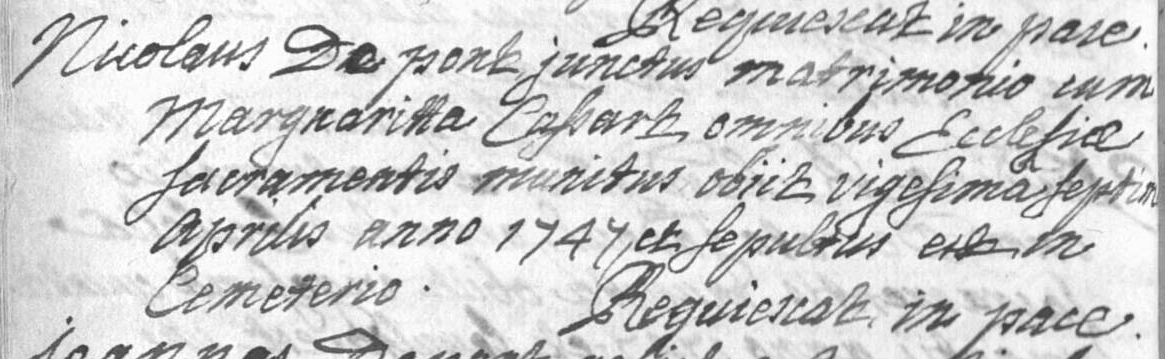 Requiescat in pace.
Nicolaus De pont junctus matrimonio cum
Marguaritta Cassart omnibus Ecclesiæ
sacramentis munitus obiit vigesima septim
aprilis anno 1747 et sepultus est in
Cemeterio.
Requiescat in pace.
Joannes